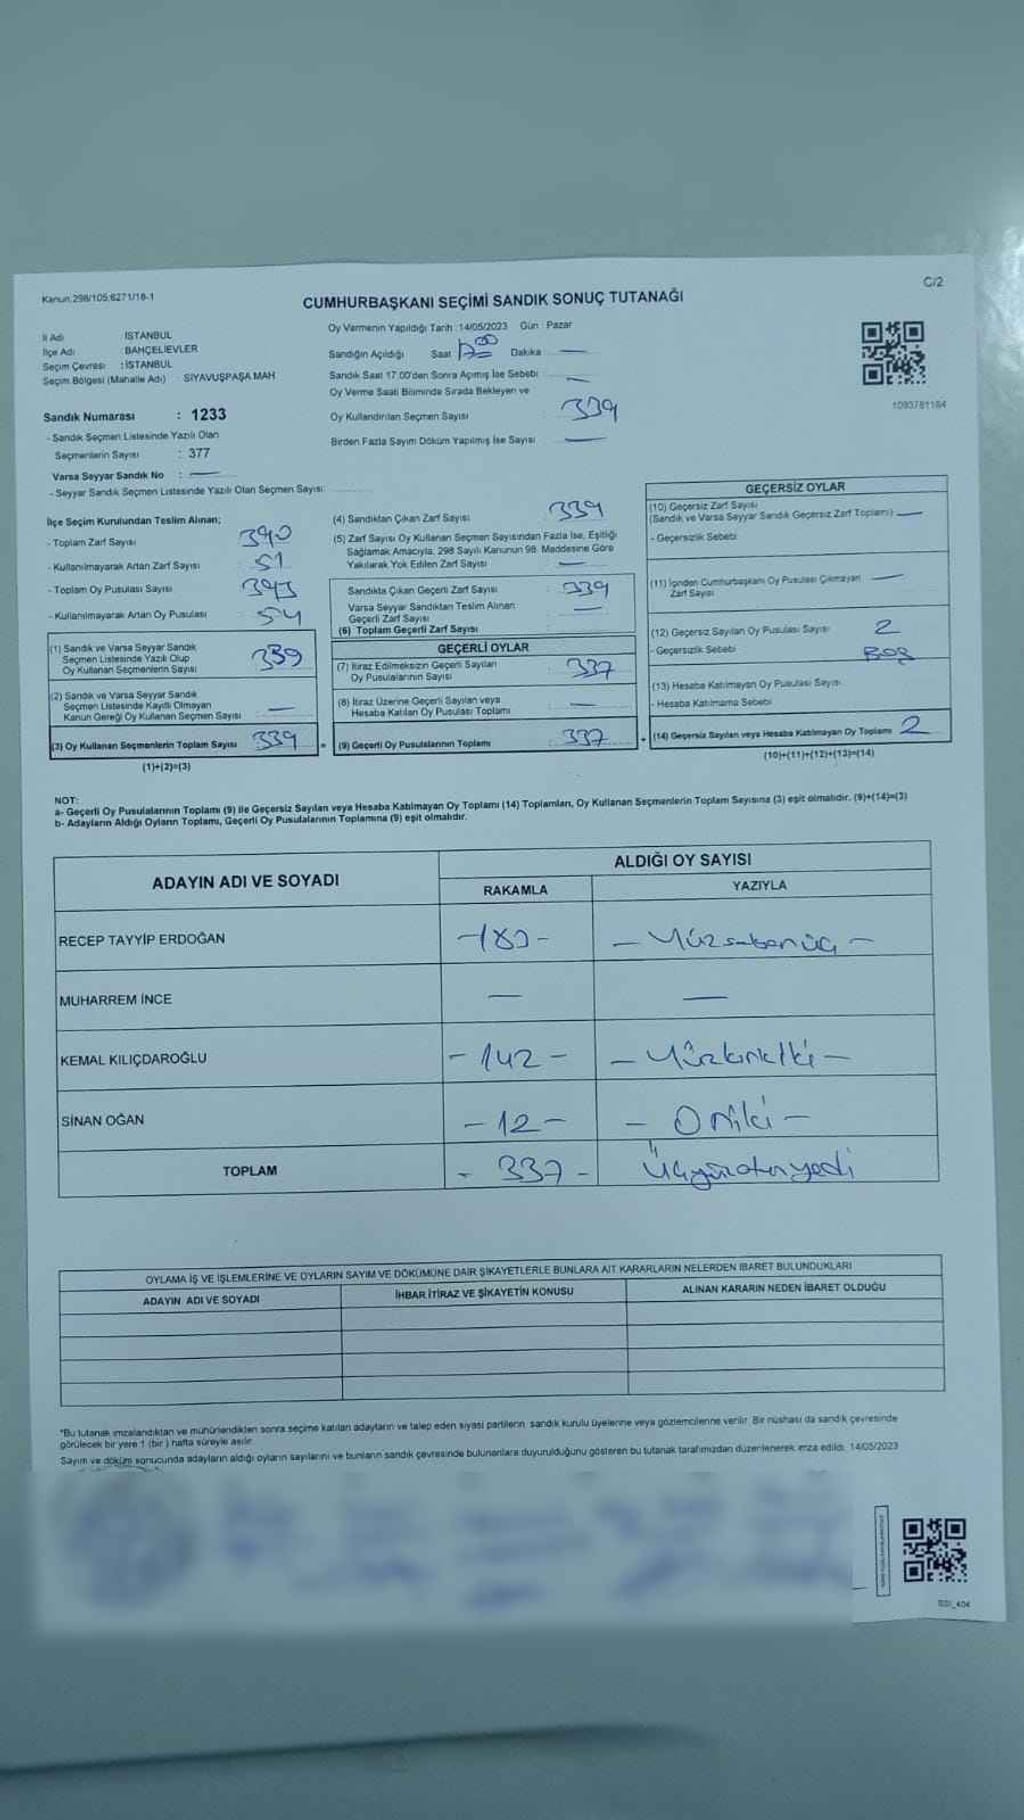 Kanun:298/105;6271/18-1
C/2
CUMHURBAŞKANI SEÇİMİ SANDIK SONUÇ TUTANAĞI
İl Adı : İSTANBUL
İlçe Adı : BAHÇELİEVLER
Seçim Çevresi : İSTANBUL
Seçim Bölgesi (Mahalle Adı) SİYAVUŞPAŞA MAH
Sandık Numarası : 1233
- Sandık Seçmen Listesinde Yazılı Olan
Seçmenlerin Sayısı : 377
Varsa Seyyar Sandık No : —
- Seyyar Sandık Seçmen Listesinde Yazılı Olan Seçmen Sayısı:
Oy Vermenin Yapıldığı Tarih :14/05/2023 Gün : Pazar
Sandığın Açıldığı Saat 17:00 Dakika —
Sandık Saat 17.00'den Sonra Açılmış İse Sebebi : —
Oy Verme Saati Bitiminde Sırada Bekleyen ve
Oy Kullandırılan Seçmen Sayısı 339
Birden Fazla Sayım Döküm Yapılmış İse Sayısı —
1093781184
İlçe Seçim Kurulundan Teslim Alınan;
- Toplam Zarf Sayısı 390
- Kullanılmayarak Artan Zarf Sayısı 51
- Toplam Oy Pusulası Sayısı 393
- Kullanılmayarak Artan Oy Pusulası 54
(1) Sandık ve Varsa Seyyar Sandık
Seçmen Listesinde Yazılı Olup
Oy Kullanan Seçmenlerin Sayısı 339
(2) Sandık ve Varsa Seyyar Sandık
Seçmen Listesinde Kayıtlı Olmayan
Kanun Gereği Oy Kullanan Seçmen Sayısı —
(3) Oy Kullanan Seçmenlerin Toplam Sayısı 339
(1)+(2)=(3)
(4) Sandıktan Çıkan Zarf Sayısı 339
(5) Zarf Sayısı Oy Kullanan Seçmen Sayısından Fazla İse, Eşitliği
Sağlamak Amacıyla, 298 Sayılı Kanunun 98. Maddesine Göre
Yakılarak Yok Edilen Zarf Sayısı —
Sandıkta Çıkan Geçerli Zarf Sayısı 339
Varsa Seyyar Sandıktan Teslim Alınan
Geçerli Zarf Sayısı —
(6) Toplam Geçerli Zarf Sayısı
GEÇERLİ OYLAR
(7) İtiraz Edilmeksizin Geçerli Sayılan
Oy Pusulalarının Sayısı 337
(8) İtiraz Üzerine Geçerli Sayılan veya
Hesaba Katılan Oy Pusulası Toplamı —
= (9) Geçerli Oy Pusulalarının Toplamı 337
GEÇERSİZ OYLAR
(10) Geçersiz Zarf Sayısı
(Sandık ve Varsa Seyyar Sandık Geçersiz Zarf Toplamı) —
- Geçersizlik Sebebi
(11) İçinden Cumhurbaşkanı Oy Pusulası Çıkmayan —
Zarf Sayısı
(12) Geçersiz Sayılan Oy Pusulası Sayısı 2
- Geçersizlik Sebebi BOŞ
(13) Hesaba Katılmayan Oy Pusulası Sayısı
- Hesaba Katılmama Sebebi
+ (14) Geçersiz Sayılan veya Hesaba Katılmayan Oy Toplamı 2
(10)+(11)+(12)+(13)=(14)
NOT:
a- Geçerli Oy Pusulalarının Toplamı (9) ile Geçersiz Sayılan veya Hesaba Katılmayan Oy Toplamı (14) Toplamları, Oy Kullanan Seçmenlerin Toplam Sayısına (3) eşit olmalıdır. (9)+(14)=(3)
b- Adayların Aldığı Oyların Toplamı, Geçerli Oy Pusulalarının Toplamına (9) eşit olmalıdır.
ADAYIN ADI VE SOYADI
ALDIĞI OY SAYISI
RAKAMLA YAZIYLA
RECEP TAYYİP ERDOĞAN -183- - Yüzseksenüç -
MUHARREM İNCE — —
KEMAL KILIÇDAROĞLU - 142 - - Yüzkırkiki -
SİNAN OĞAN - 12 - - Oniki -
TOPLAM - 337 - Üçyüzotuzyedi
OYLAMA İŞ VE İŞLEMLERİNE VE OYLARIN SAYIM VE DÖKÜMÜNE DAİR ŞİKAYETLERLE BUNLARA AİT KARARLARIN NELERDEN İBARET BULUNDUKLARI
ADAYIN ADI VE SOYADI İHBAR İTİRAZ VE ŞİKAYETİN KONUSU ALINAN KARARIN NEDEN İBARET OLDUĞU
*Bu tutanak imzalandıktan ve mühürlendikten sonra seçime katılan adayların ve talep eden siyasi partilerin, sandık kurulu üyelerine veya gözlemcilerine verilir. Bir nüshası da sandık çevresinde
görülecek bir yere 1 (bir ) hafta süreyle asılır.
Sayım ve döküm sonucunda adayların aldığı oyların sayılarını ve bunların sandık çevresinde bulunanlara duyurulduğunu gösteren bu tutanak tarafımızdan düzenlenerek imza edildi. 14/05/2023